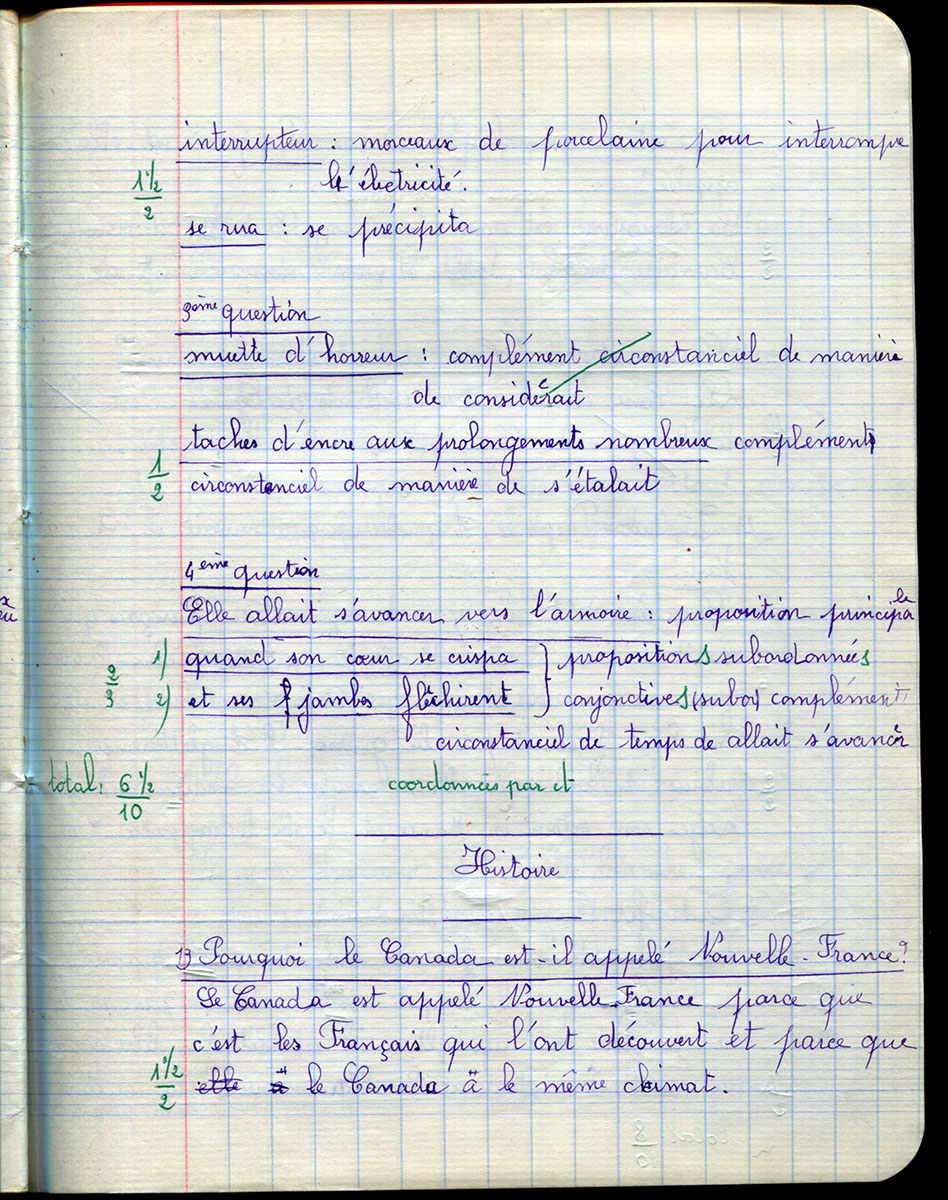 interrupteur : morceaux de porcelaine pour interrompre
l'électricité.
1 1/2
2
se rua : se précipita
3ème question
muette d'horreur : complément circonstanciel de manière
de considérait
taches d'encre aux prolongements nombreux complément
1
2
circonstanciel de manière de s'étalait
4ème question
Elle allait s'avancer vers l'armoire : proposition principale
1) quand son cœur se crispa } propositions subordonnées
2
3
2) et ses jambes fléchirent } conjonctives (subo) complément
circonstanciel de temps de allait s'avancer
total : 6 1/2
10
coordonnées par et
Histoire
1) Pourquoi le Canada est-il appelé Nouvelle-France ?
Le Canada est appelé Nouvelle-France parce que
c'est les Français qui l'ont découvert et parce que
1 1/2
2
elle a le Canada a le même climat.